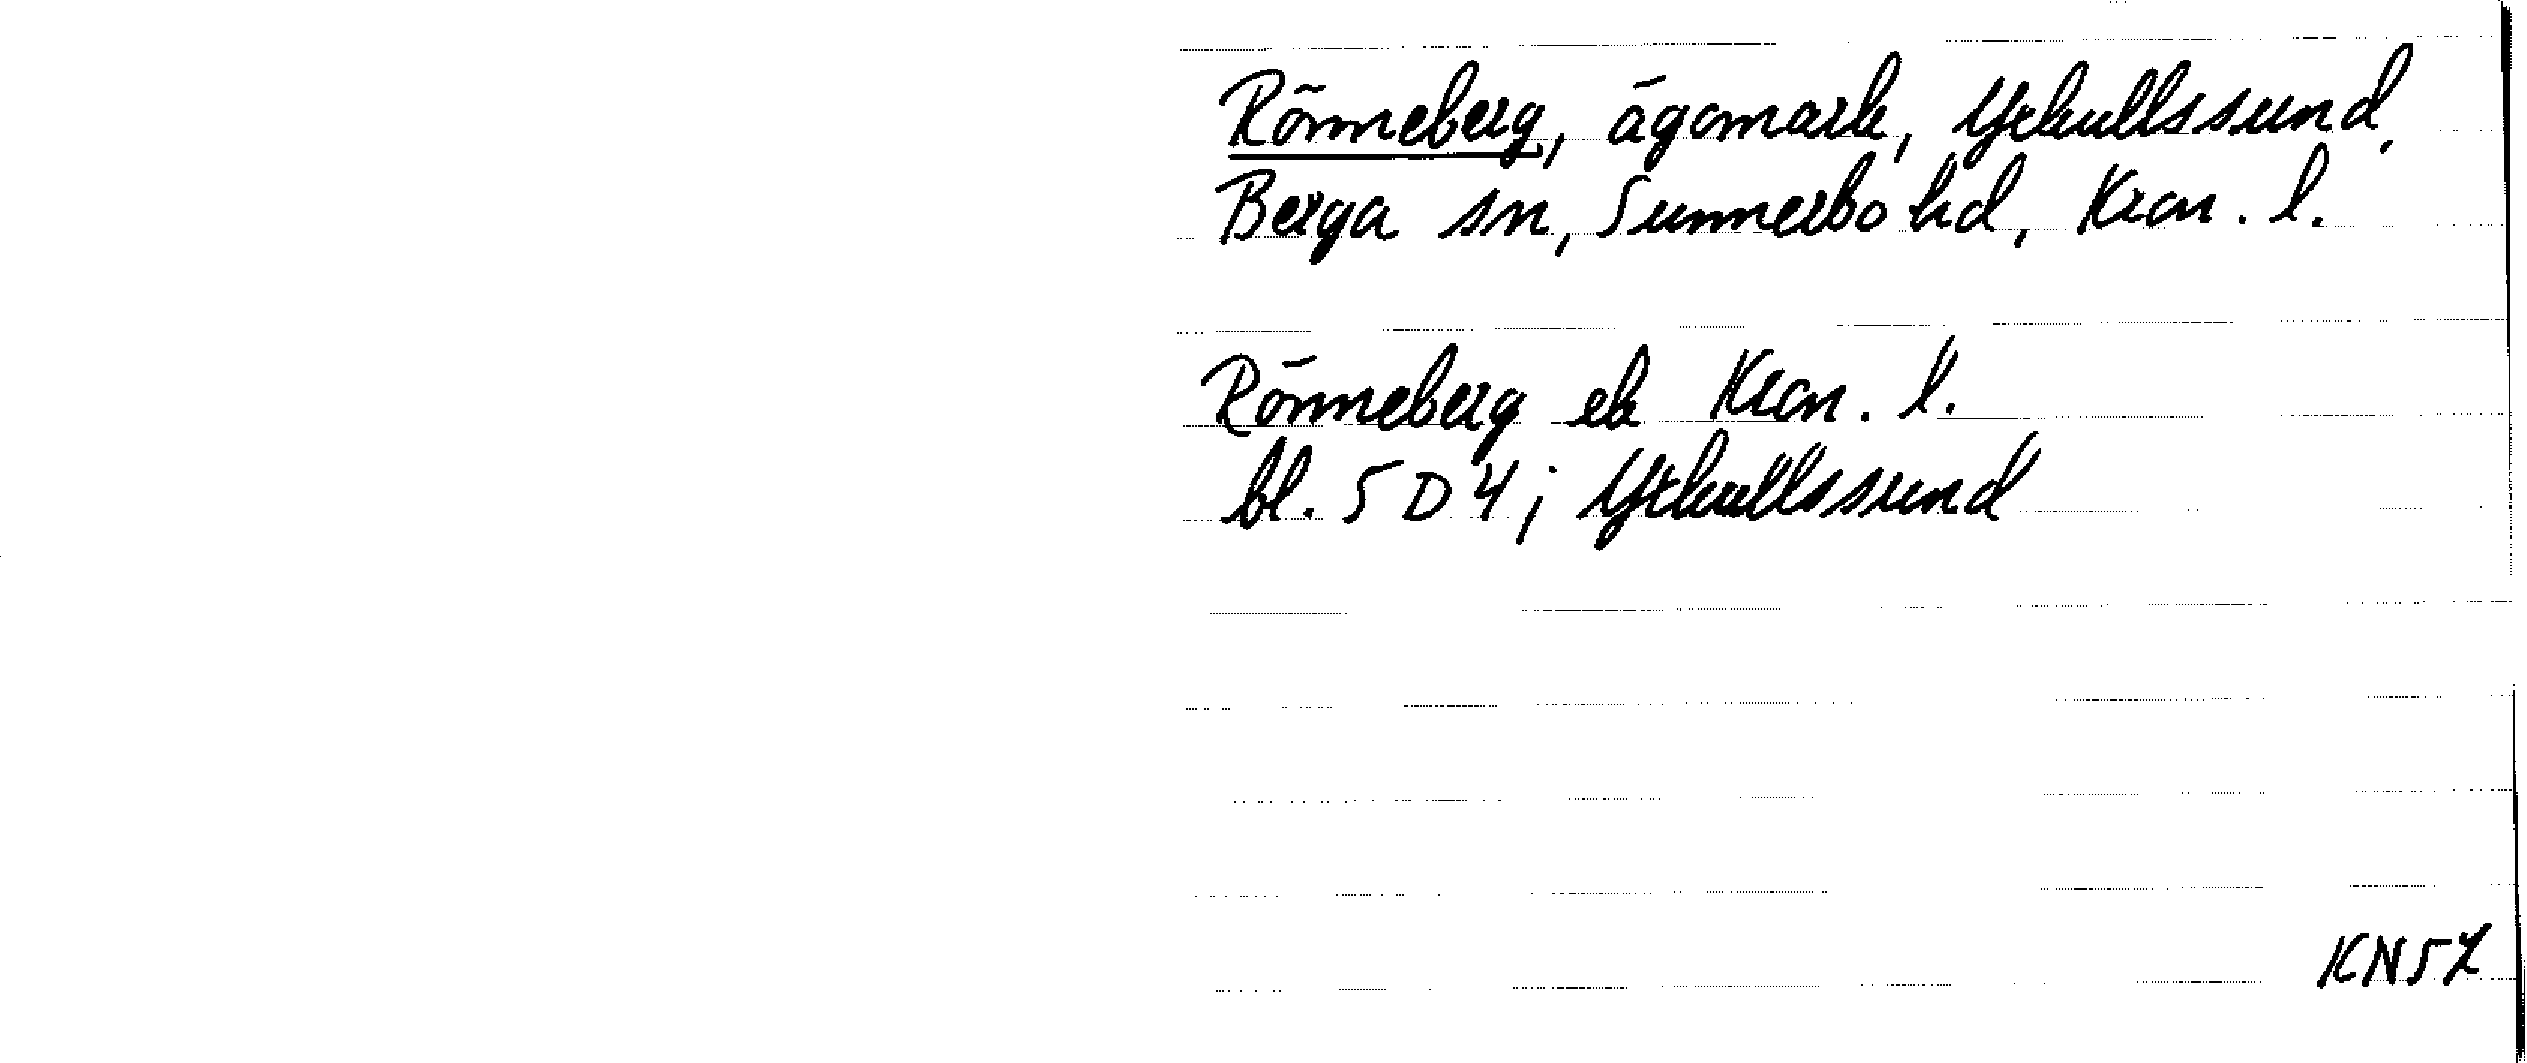 Rönneberg, ägomark, Yxkullssund,
Berga sn, Sunnerbo hd, Kron. l.
Rönneberg ek Kron. l.
bl. 5 D 4; Yxkullssund
KN57